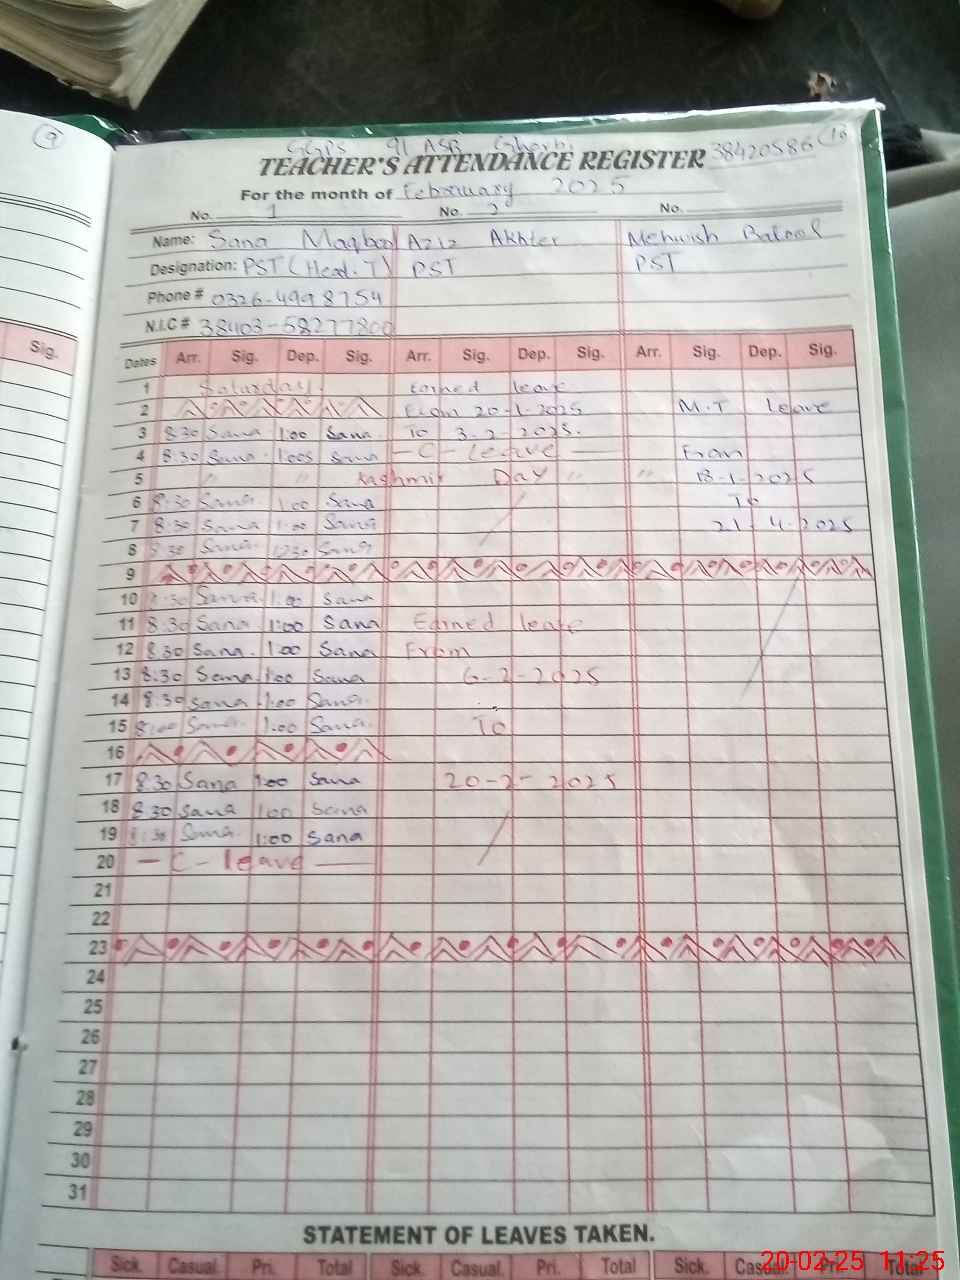 9
GGPS 91 ASB Gharbi
TEACHER'S ATTENDANCE REGISTER 38420586 18
For the month of February 2025
No. 1 No. 2 No.
Name: Sana Maqbool Aziz Akhter Mehwish Batool
Designation: PST (Head.T) PST PST
Phone # 0326-4998754
N.I.C # 38403-5827780
Sig. Dates Arr. Sig. Dep. Sig. Arr. Sig. Dep. Sig. Arr. Sig. Dep. Sig.
1 Saturday. Earned leave
2 From 20-1-2025 M.T leave
3 8.30 Sana 1:00 Sana. To 3-2-2025.
4 8:30 Sana. 1:00 Sana - C - leave - From
5 " Kashmir Day " " 18-1-2025
6 8:30 Sana. 1:00 Sana To
7 8:30 Sana 1:00 Sana 21-4-2025
8 8:30 Sana. 1230 Sana
9
10 8:30 Sana. 1:00 Sana
11 8:30 Sana 1:00 Sana Earned leave
12 8.30 Sana. 1:00 Sana From
13 8:30 Sana. 1:00 Sana 6-2-2025
14 8:30 Sana. 1:00 Sana.
15 8:00 Sana. 1:00 Sana. To
16
17 8.30 Sana 1:00 Sana 20-2-2025
18 8.30 Sana 1:00 Sana
19 8:30 Sana. 1:00 Sana
20 - C - leave -
21
22
23
24
25
26
27
28
29
30
31
STATEMENT OF LEAVES TAKEN.
Sick. Casual. Pri. Total Sick. Casual. Pri. Total Sick. Casual. Pri. Total
20-02-25 11:25